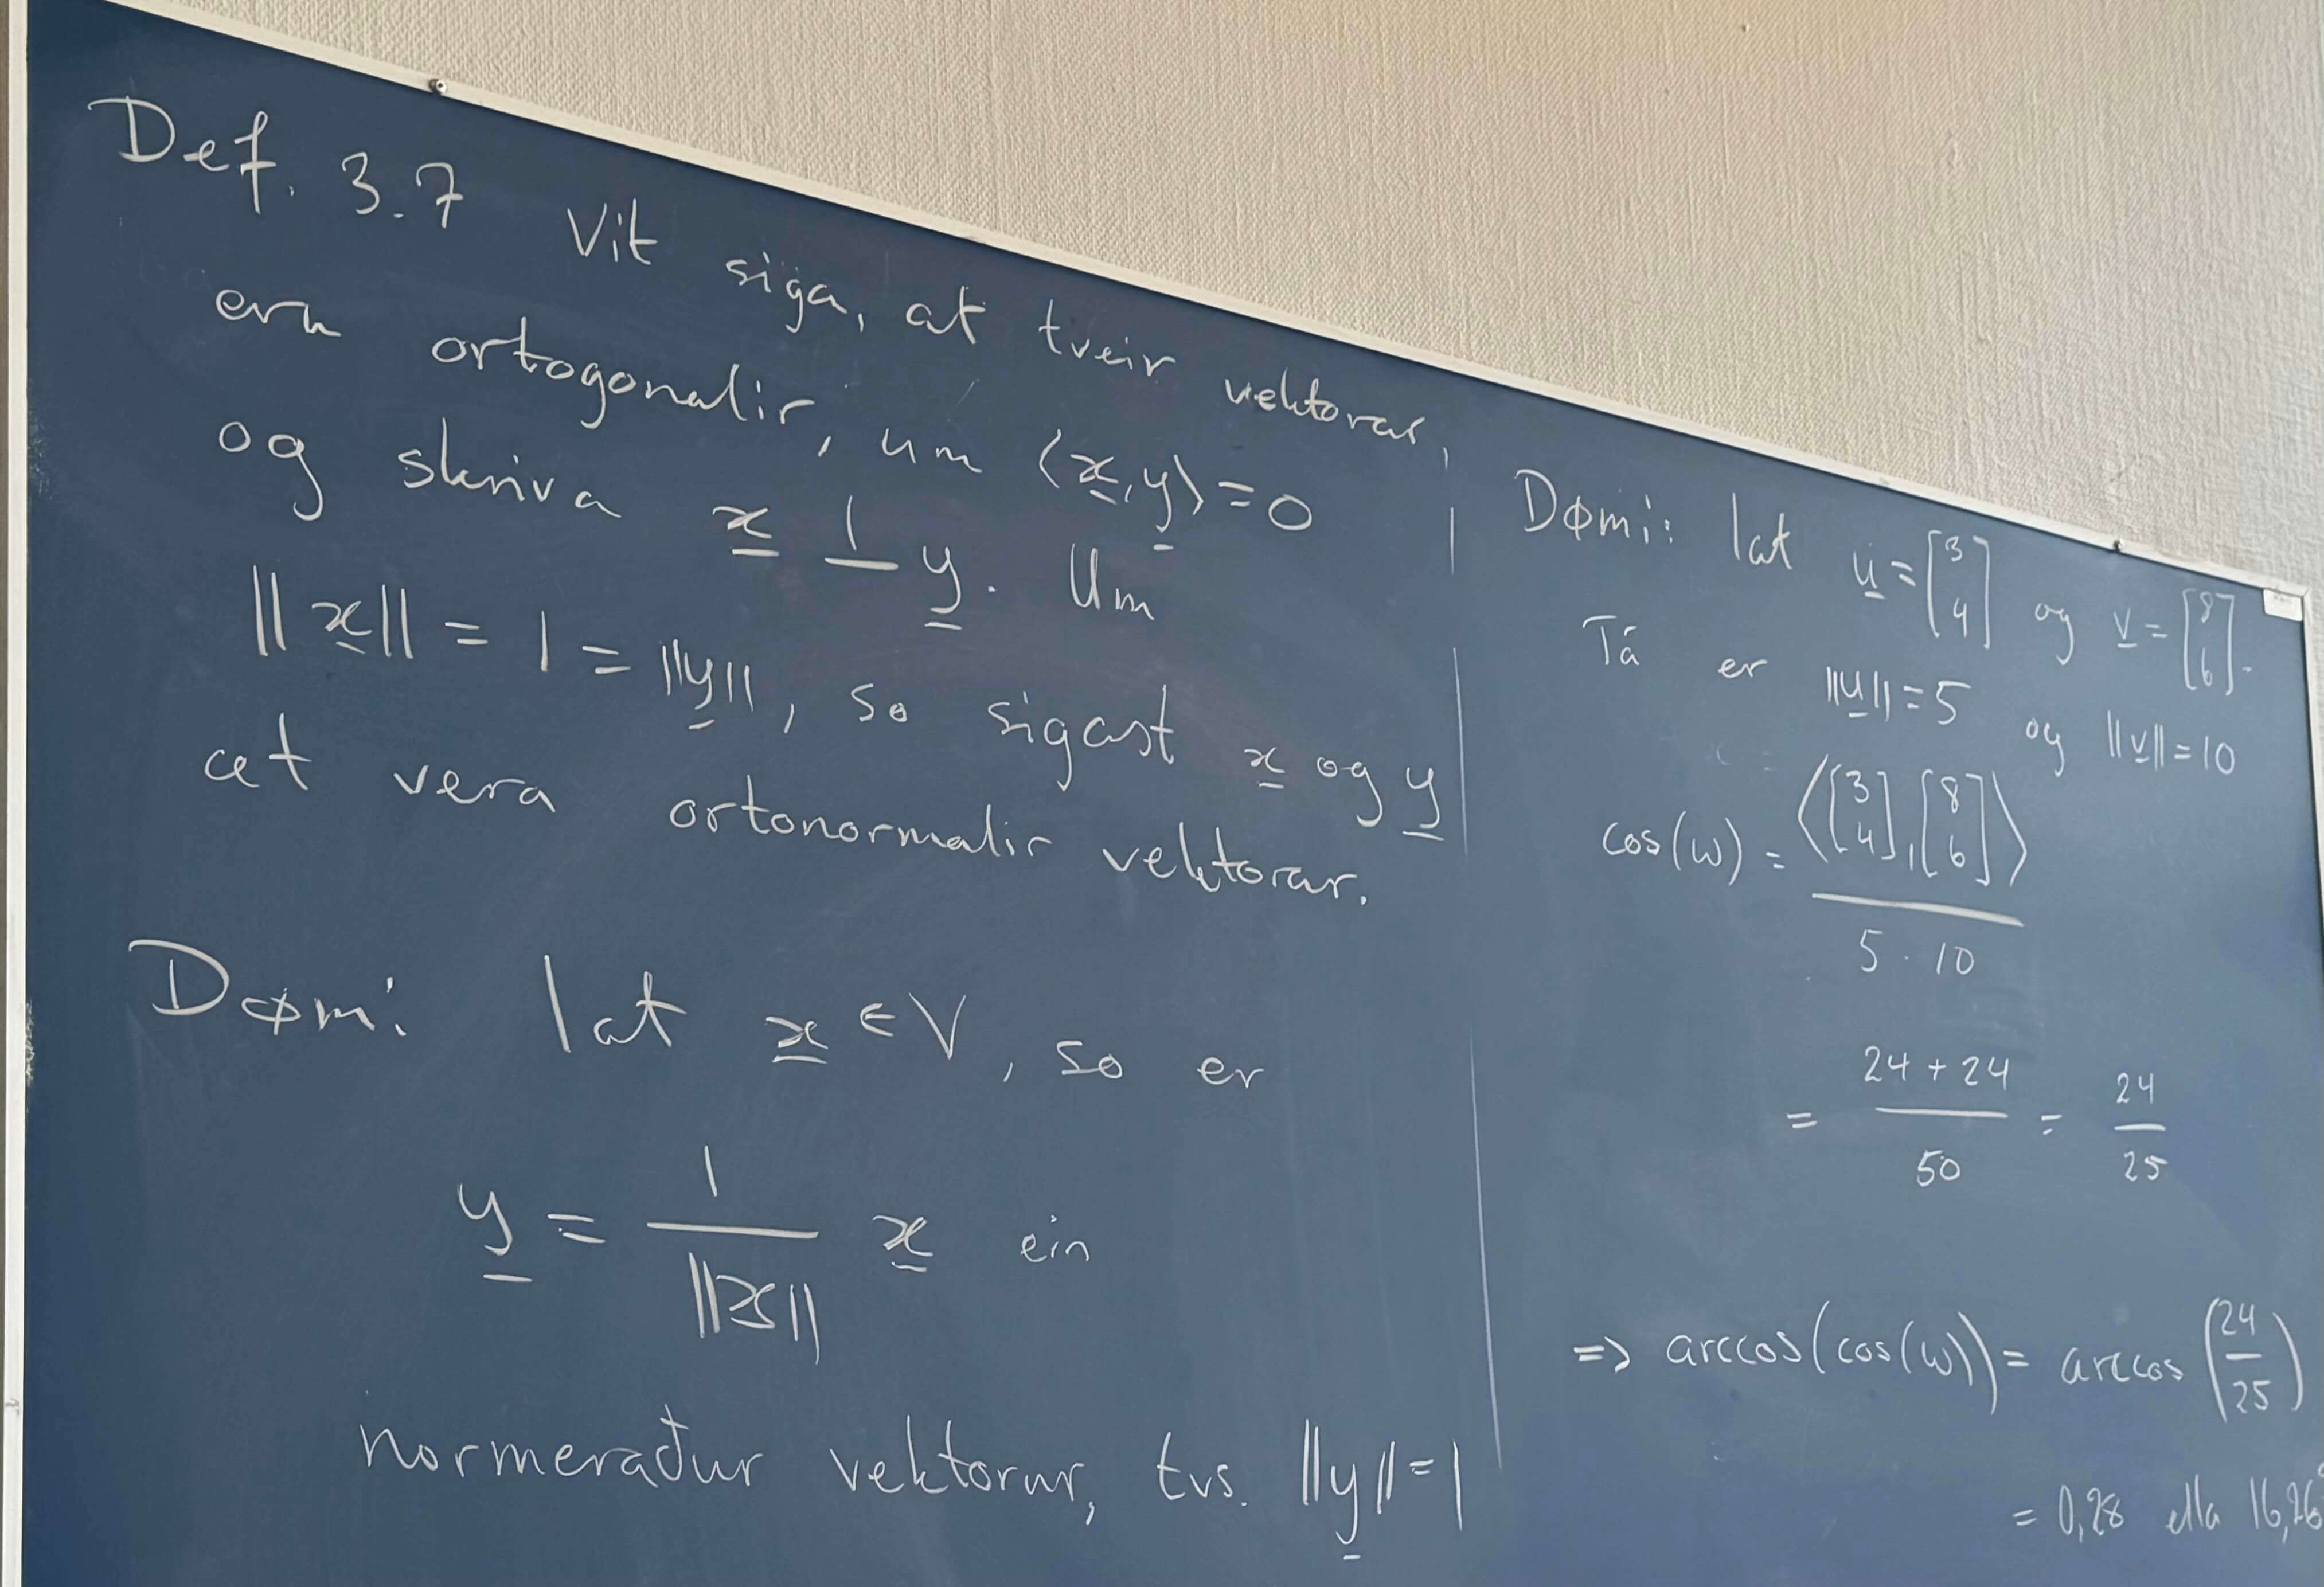 Def. 3.7 Vit siga, at tveir vektorar,
eru ortogonalir, um ⟨x,y⟩=0
og skriva x ⊥ y. Um
||x|| = 1 = ||y||, so sigast x og y
at vera ortonormalir vektorar.
Dømi: lat x ∈ V, so er
y = 1/||x|| x ein
normeraður vektorur, tvs. ||y||=1
Dømi: lat u = [3 4] og v = [8 6].
Tá er ||u||=5 og ||v||=10
cos(w) = ⟨[3 4],[8 6]⟩ / 5·10
= 24+24 / 50 = 24/25
=> arccos(cos(w)) = arccos(24/25)
= 0,28 ella 16,26°